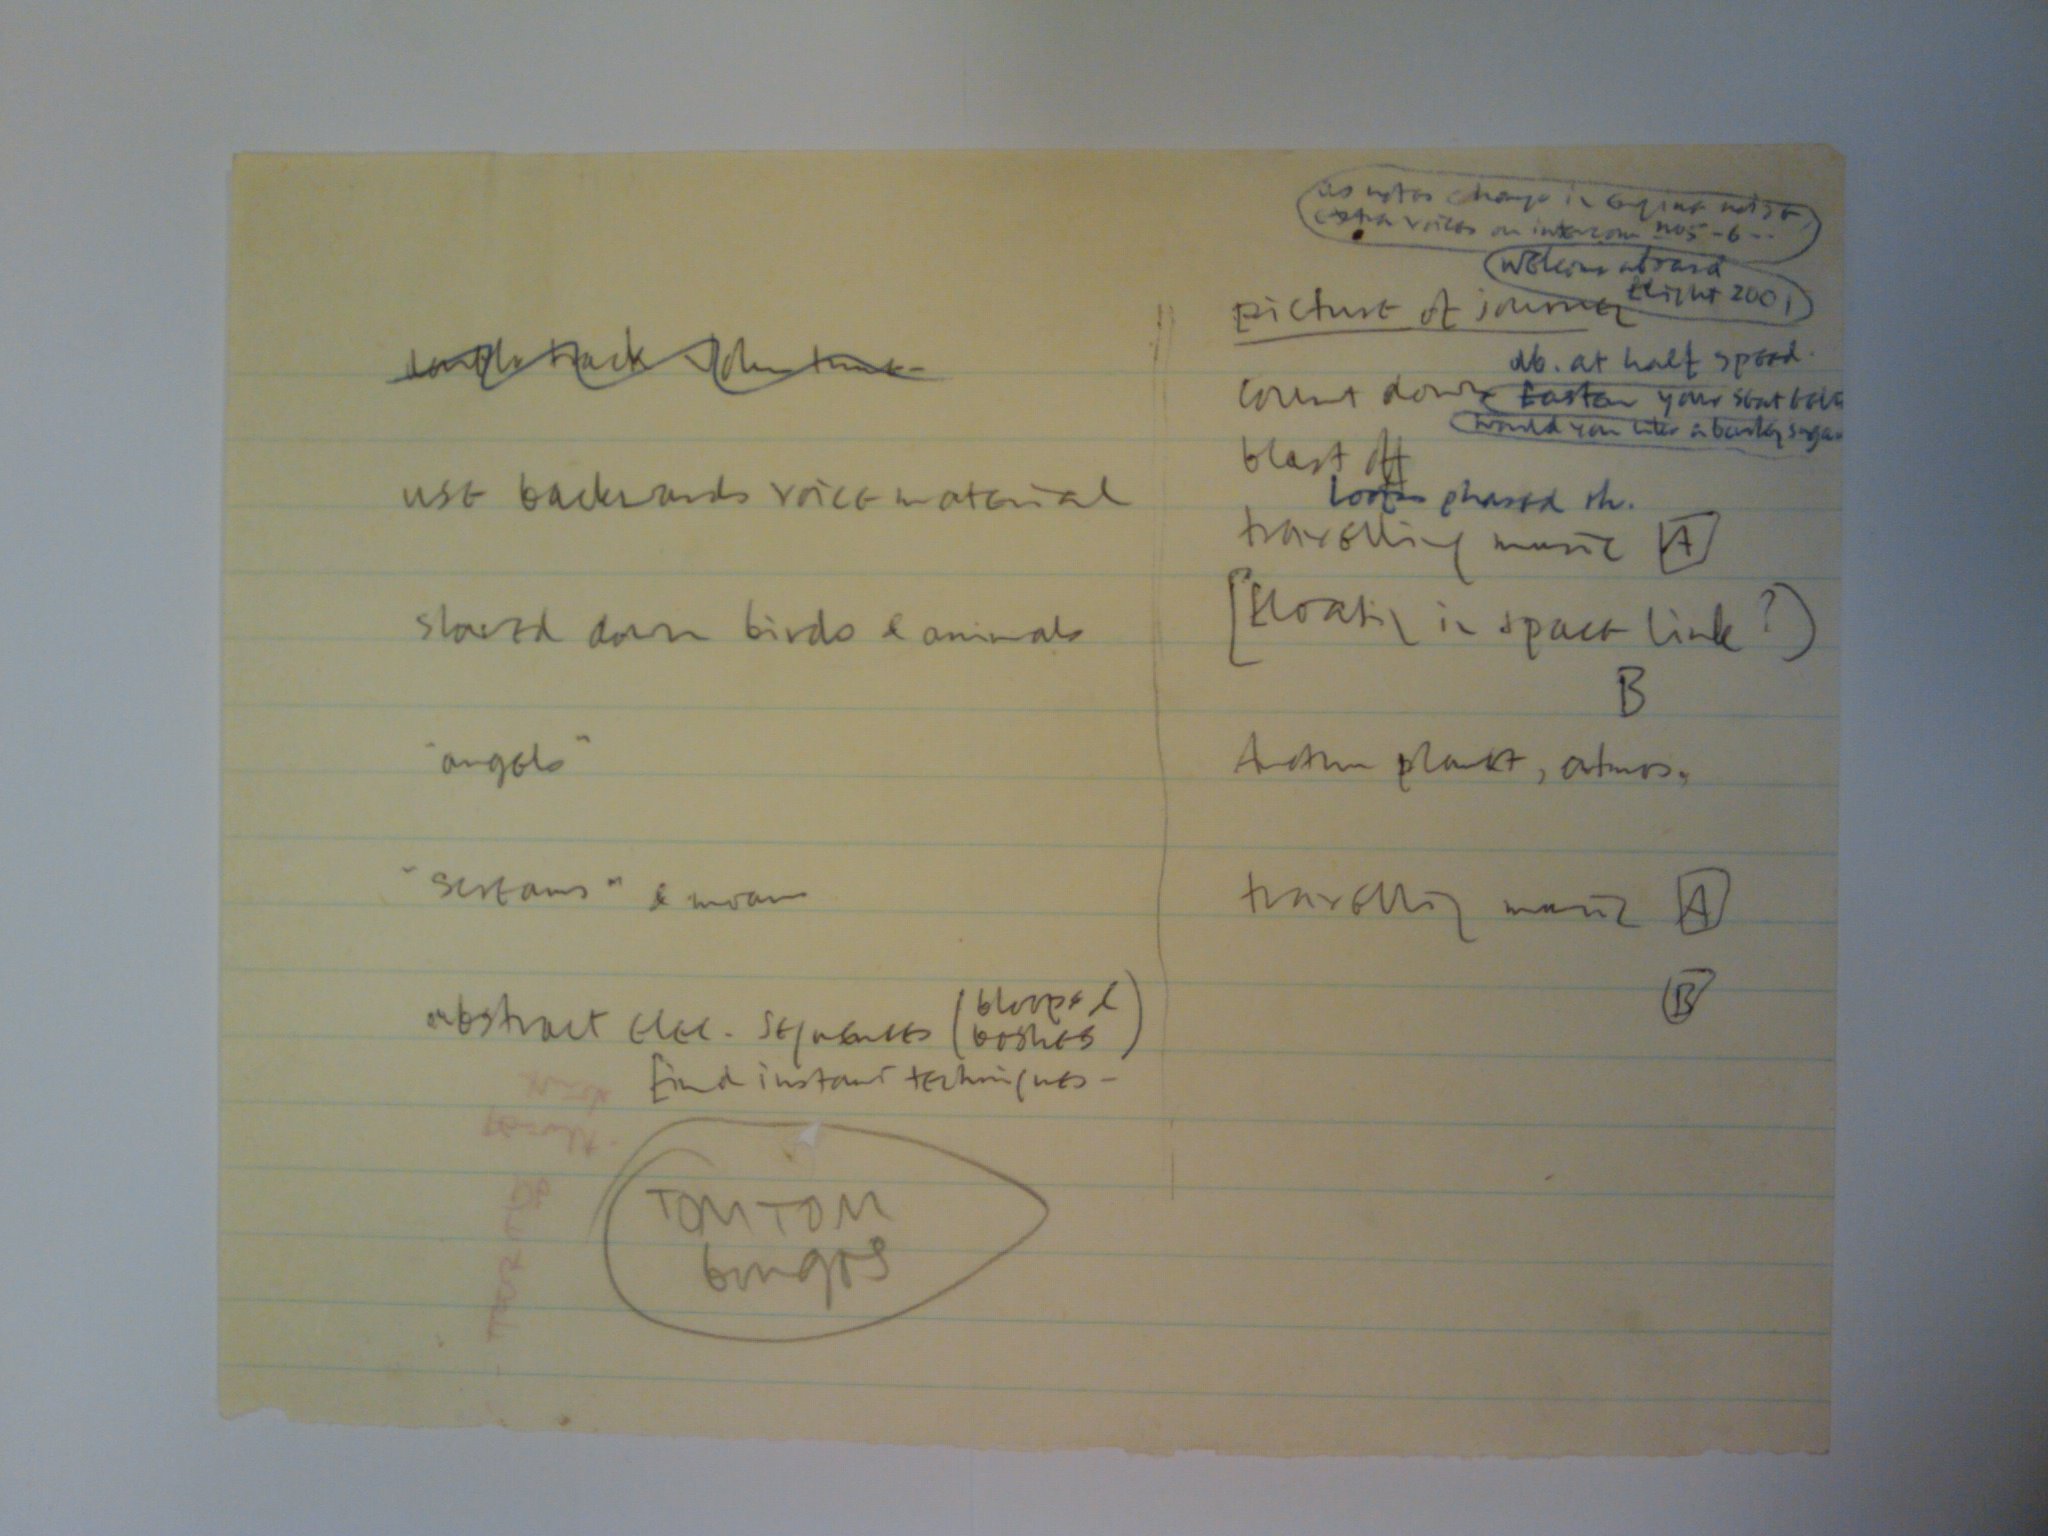 double track
use backwards voice material
slowed down birds & animals
"angels"
"screams" & moans
abstract elec. sequences (bloops &
boshes)
find instant techniques-
TOMTOM
bongos
change in engine noise,
extra voices on intercom nos -6--
welcome aboard
flight 2001
picture of journey
db. at half speed.
count down fasten your seat belts
would you like a barley sugar
blast off
loops phased th.
travelling music A
[floating in space link?)
B
Another planet, atmos.
travelling music A
B